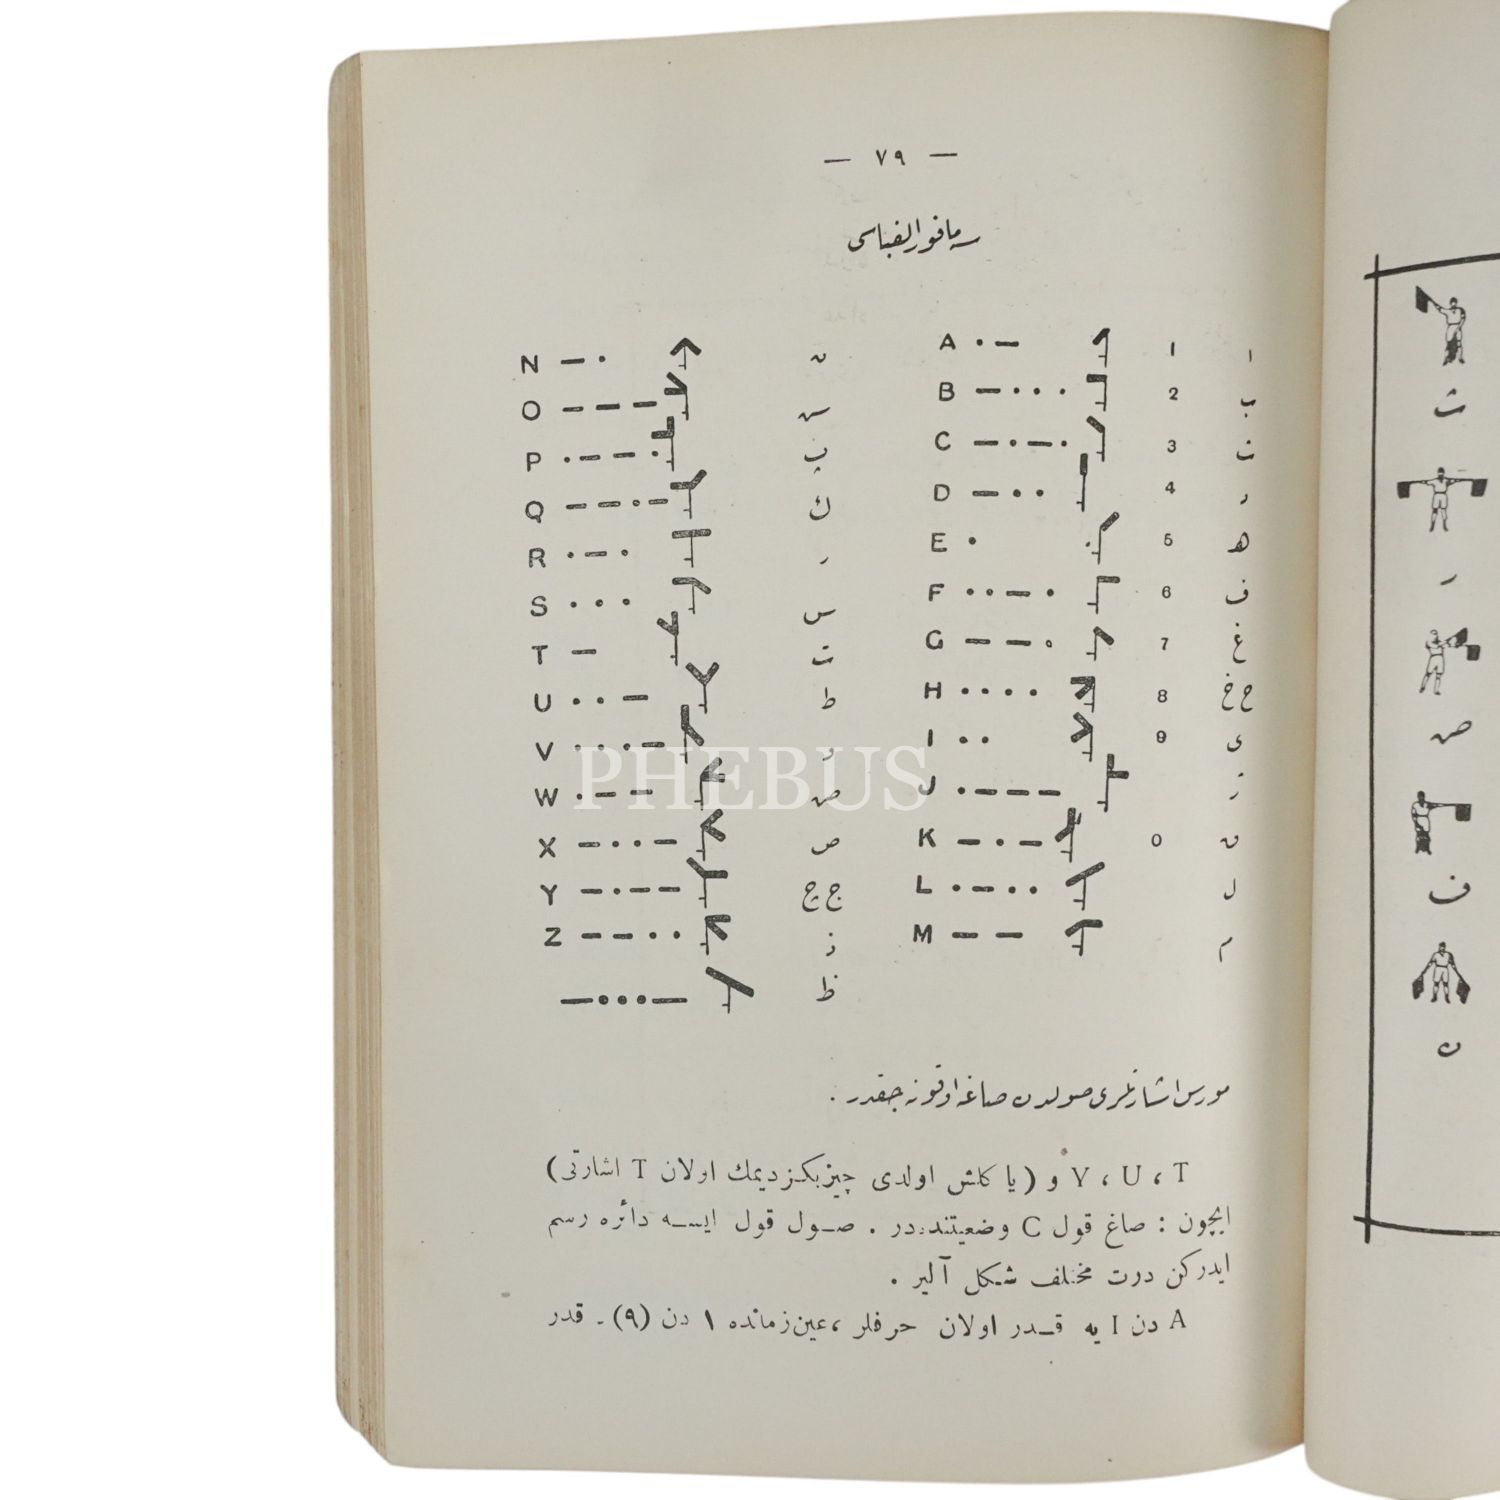 — ٧٩ —
سه مافور الفباسی
A ·— 1 ا
B —··· 2 ب
C —·—· 3
D —·· 4 د
E · 5 ه
F ··—· 6 ف
G ——· 7 غ
H ···· 8 ح خ
I ·· 9 ی
J ·——— ژ
K —·— 0
L ·—·· ل
M —— م
N —· ن
O ———
P ·——· پ
Q ——·— ك
R ·—· ر
S ··· س
T — ت
U ··— ط
V ···— و
W ·—— ض
X —··— ص
Y —·—— ج چ
Z ——·· ز
—···— ظ
مورس اشارتلری صولدن صاغه اوقونه جقدر .
T ، U ، V و (یا كلش اولدی چیزیكز دیمك اولان T اشارتی)
ایچون : صاغ قول C وضعیتنده در . صول قول ایسه دائره رسم
ایدركن درت مختلف شكل آلیر .
A دن I یه قدر اولان حرفلر ، عین زمانده ١ دن (٩) . قدر
ث
ر
ض
ف
ن
PHEBUS